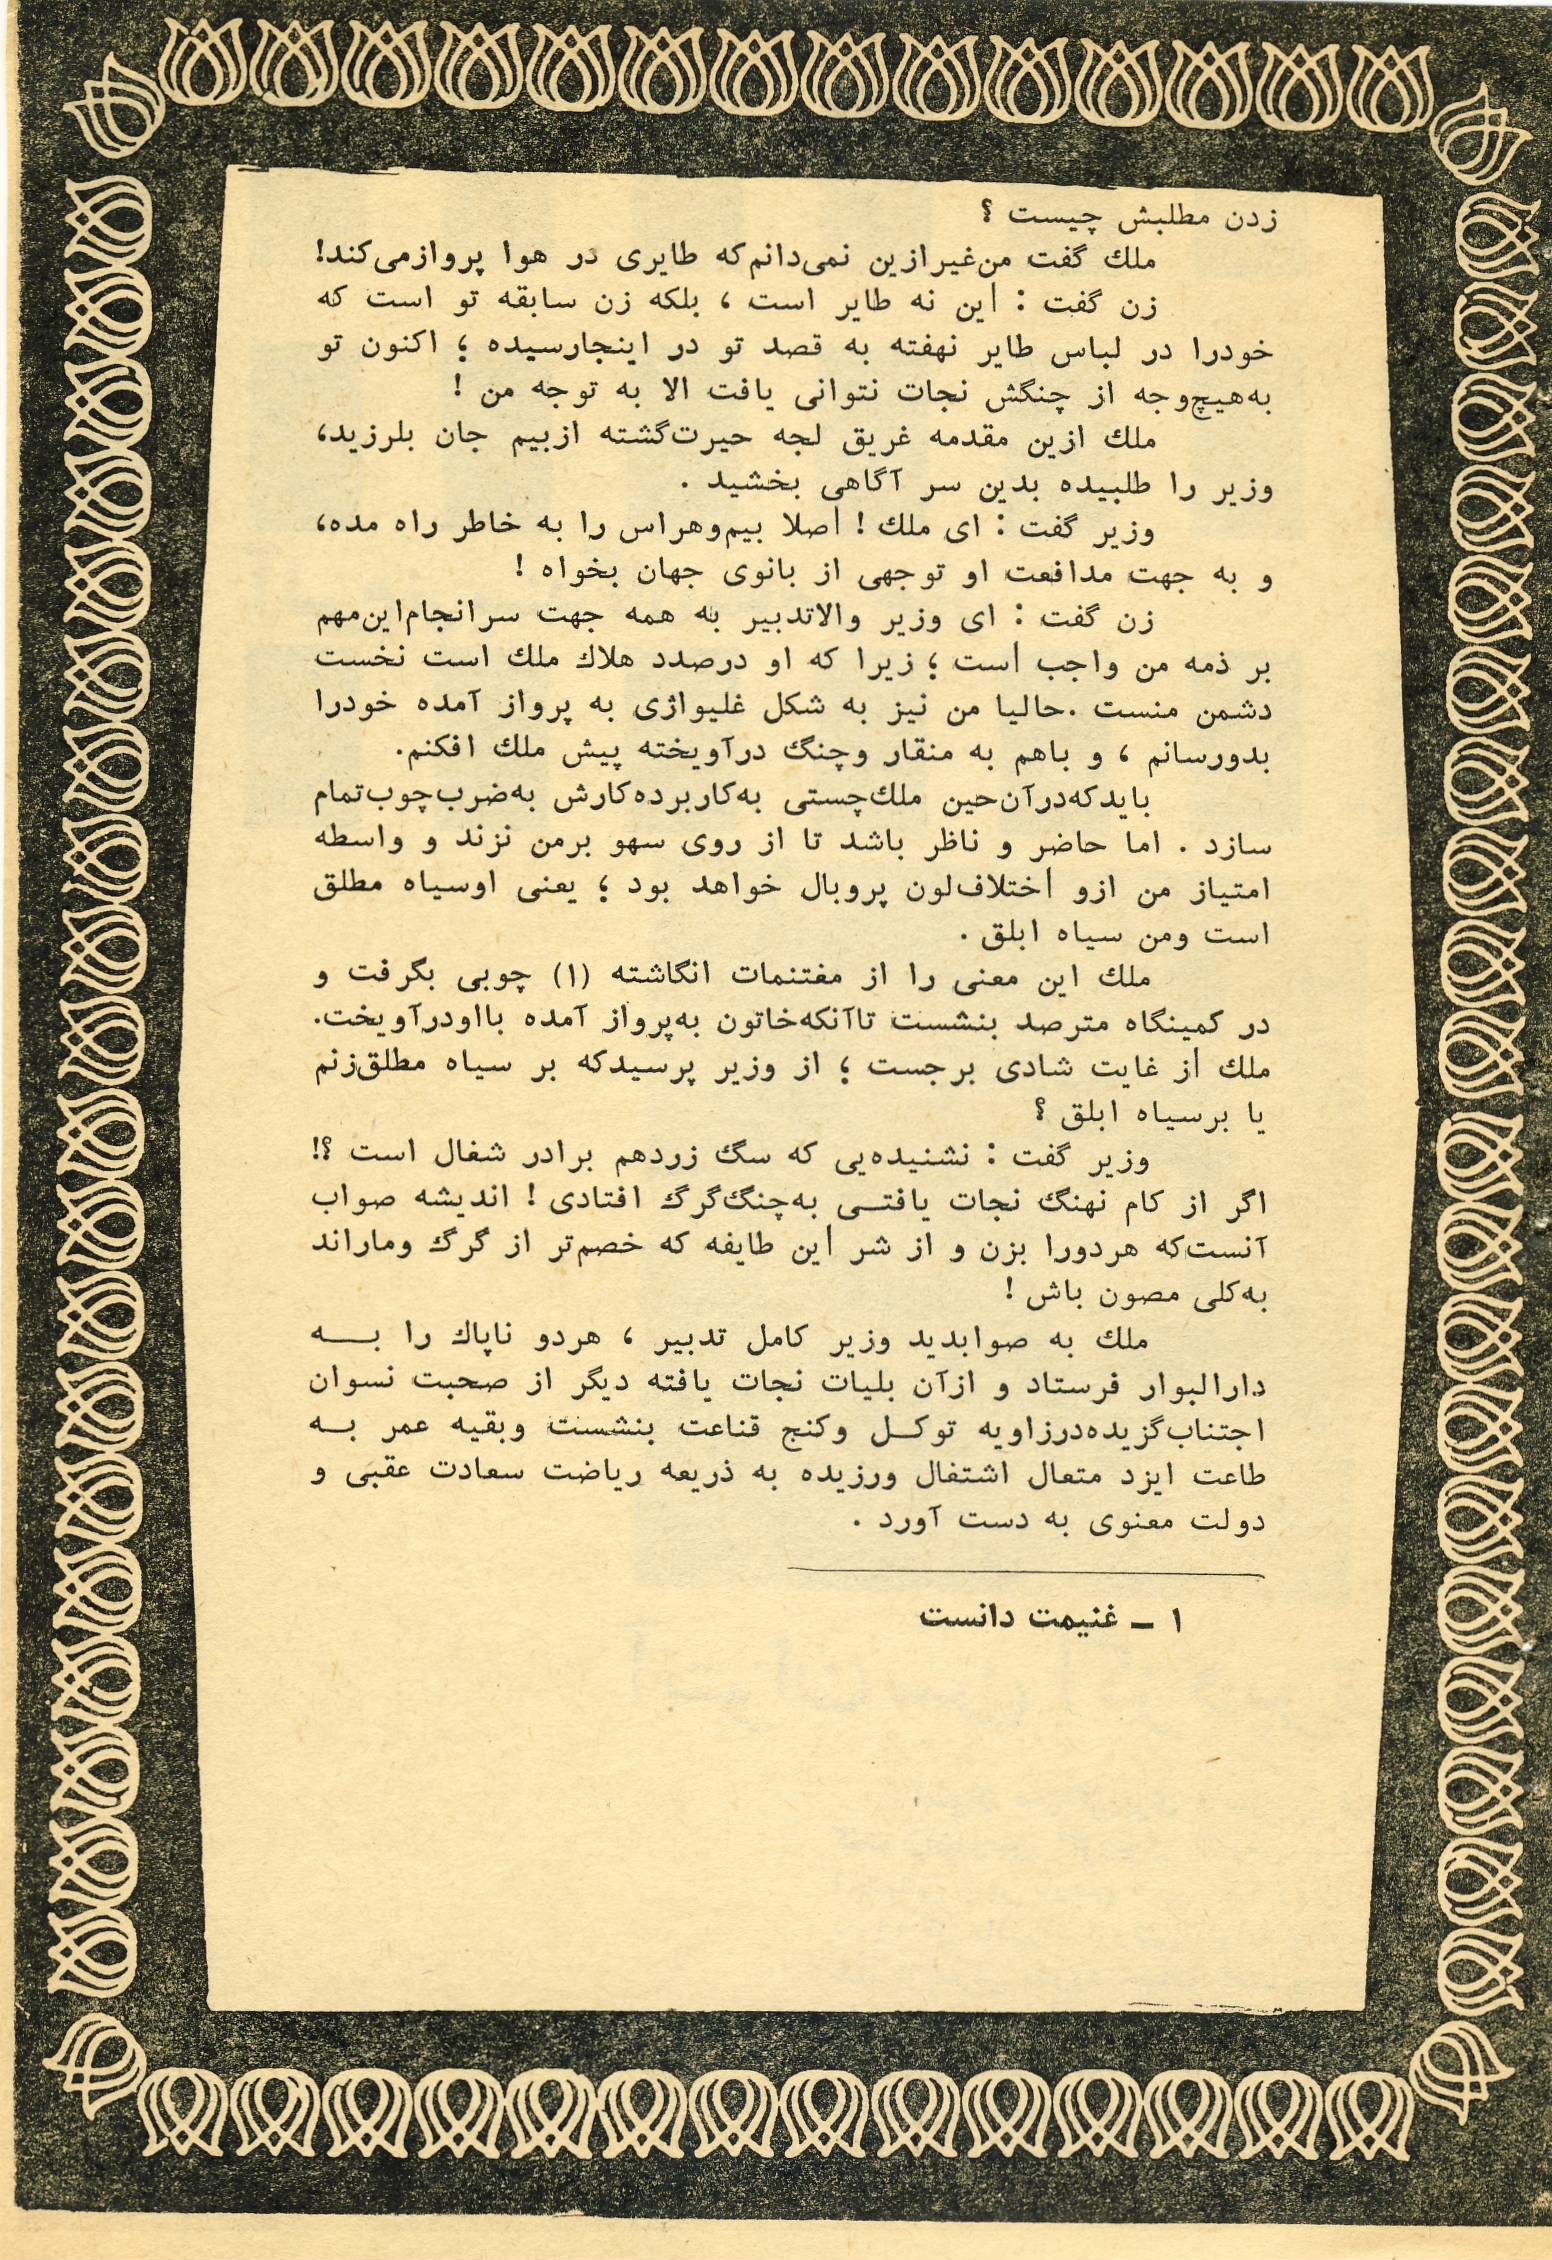 زدن مطلبش چیست ؟
ملك گفت من‌غیرازین نمی‌دانم‌که طایری در هوا پروازمی‌کند!
زن گفت : این نه طایر است ، بلکه زن سابقه تو است که
خودرا در لباس طایر نهفته به قصد تو در اینجارسیده ؛ اکنون تو
به‌هیچ‌وجه از چنگش نجات نتوانی یافت الا به توجه من !
ملك ازین مقدمه غریق لجه حیرت‌گشته ازبیم جان بلرزید،
وزیر را طلبیده بدین سر آگاهی بخشید .
وزیر گفت : ای ملك ! اصلا بیم‌وهراس را به خاطر راه مده،
و به جهت مدافعت او توجهی از بانوی جهان بخواه !
زن گفت : ای وزیر والاتدبیر به همه جهت سرانجام‌این‌مهم
بر ذمه من واجب است ؛ زیرا که او درصدد هلاك ملك است نخست
دشمن منست .حالیا من نیز به شکل غلیواژی به پرواز آمده خودرا
بدورسانم ، و باهم به منقار وچنگ درآویخته پیش ملك افکنم.
بایدکه‌درآن‌حین ملك‌چستی به‌کاربرده‌کارش به‌ضرب‌چوب‌تمام
سازد . اما حاضر و ناظر باشد تا از روی سهو برمن نزند و واسطه
امتیاز من ازو اختلاف‌لون پروبال خواهد بود ؛ یعنی اوسیاه مطلق
است ومن سیاه ابلق .
ملك این معنی را از مغتنمات انگاشته (۱) چوبی بگرفت و
در کمینگاه مترصد بنشست تاآنکه‌خاتون به‌پرواز آمده بااودرآویخت.
ملك از غایت شادی برجست ؛ از وزیر پرسیدکه بر سیاه مطلق‌زنم
یا برسیاه ابلق ؟
وزیر گفت : نشنیده‌یی که سگ زردهم برادر شغال است ؟!
اگر از کام نهنگ نجات یافتــی به‌چنگ‌گرگ افتادی ! اندیشه صواب
آنست‌که هردورا بزن و از شر این طایفه که خصم‌تر از گرگ وماراند
به‌کلی مصون باش !
ملك به صوابدید وزیر کامل تدبیر ، هردو ناپاك را بــه
دارالبوار فرستاد و ازآن بلیات نجات یافته دیگر از صحبت نسوان
اجتناب‌گزیده‌درزاویه توکــل وکنج قناعت بنشست وبقیه عمر بــه
طاعت ایزد متعال اشتغال ورزیده به ذریعه ریاضت سعادت عقبی و
دولت معنوی به دست آورد .
۱ ــ غنیمت دانست